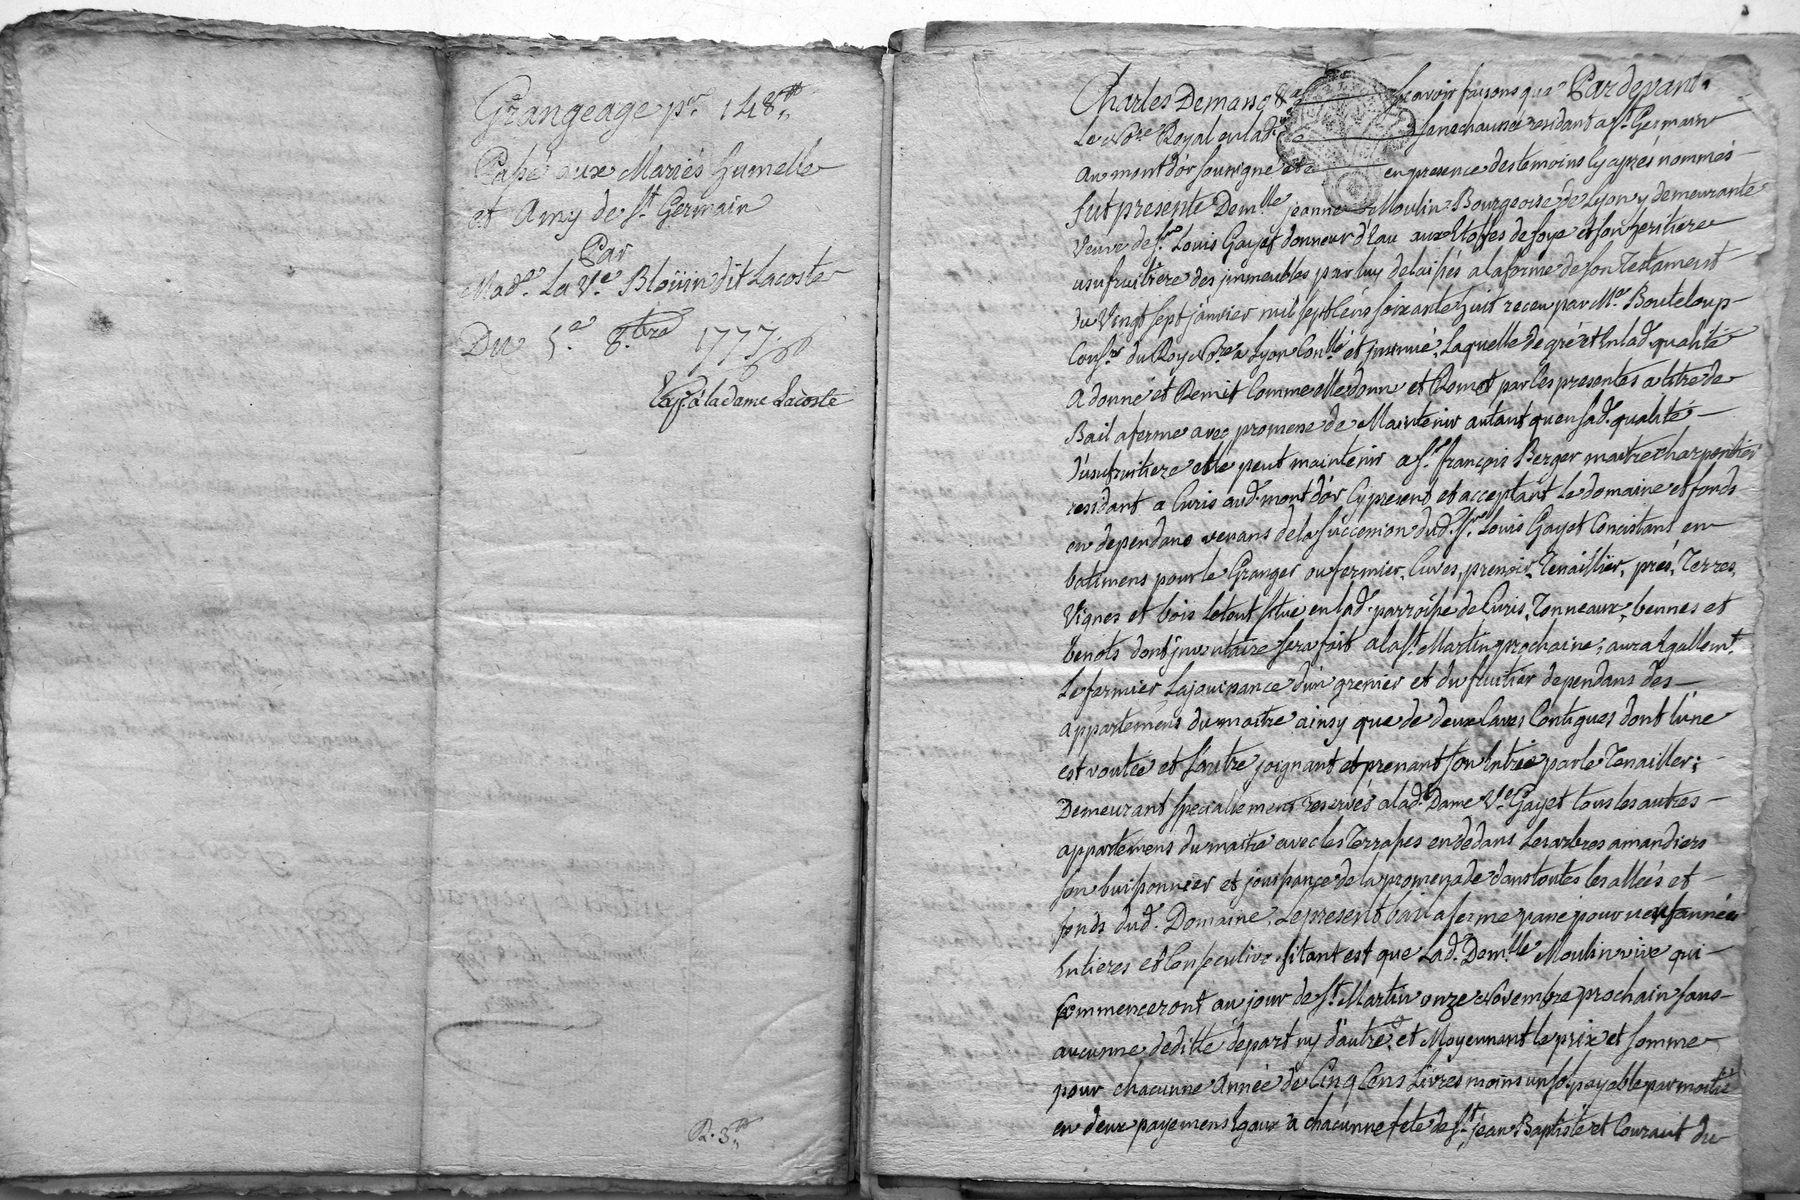 Grangeage pr. 148ᵗᵗ
Passé aux Mariés humelle
et Amy de St. Germain
Par
Made. La Ve. Bloüin dit Lacoste
Du 5e. 8.bre 1777
Exp. a la dame Lacoste
R. 3ᵗᵗ
Charles Demasso &a. scavoir faisons que Pardevant
Le Nre. Royal en lad. senechaussée residant a St. Germain
au mont d'or soussigné et en presence des temoins cy aprés nommés
fut presente Demlle. jeanne Moulin Bourgeoise de Lyon y demeurante
veuve de Sr. Louis Gayet donneur d'Eau aux Etoffes de soye et son heritiere
usufruitiere des jmmeubles par luy delaissés a la forme de son Testament
du Vingt sept janvier mil sept Cens soixante huit receu par Me. Bouteloup
Conser. du Roy Nre. a Lyon Conllé. et jnsinué, Laquelle de gré et En lad. qualité
a donné et Remit Comme elle donne et Remet par les presentes a titre de
Bail a ferme avec promesse de Maintenir autant qu'en sad. qualité
d'usufruitiere elle peut maintenir a Sr. françois Berger maitre charpentier
residant a Curis aud. mont d'or Cy present et acceptant le domaine et fonds
en dependans venans de la succession dud. Sr. Louis Gayet Concistans en
batimens pour le Granger ou fermier, Cuves, pressoir, Tenaillier, prés, Terres,
Vignes et bois le tout situé en lad. parroisse de Curis, Tonneaux, bennes et
benots dont jnventaire sera fait a la St. Martin prochaine; aura Egallemt.
Le fermier La jouissance d'un grenier et du fruitier dependans des
appartemens du maitre ainsy que de deux Caves Contigues dont l'une
est voutée et l'autre joignant et prenant son Entrée par le Tenaillier;
Demeurant specialement reservés a lad. Dame Ve. Gayet tous les autres
appartemens du maitre avec les Terrasses en dedans les arbres amandiers
son buissonnier et jouissance de la promenade dans toutes les allées et
fonds dud. Domaine, Le present bail a ferme passé pour neuf années
Entieres et Consecutives si tant est que Lad. Demlle. Moulin vive qui
Commenceront au jour de St. Martin onze Novembre prochain sans
aucunne deditte de part ny d'autre, et Moyennant le prix et somme
pour chacunne Année de Cinq Cens Livres moins un sol payable par moitié
en deux payemens Egaux a chacunne fete de St. jean Baptiste et Courant du